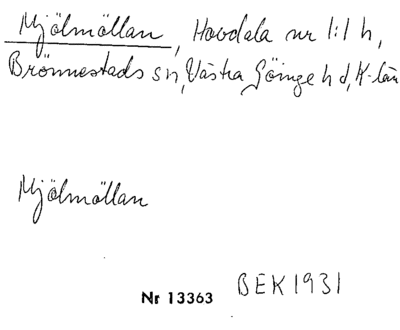 Mjölmöllan, Hovdala nr 1:1 h,
Brönnestads sn, Västra Göinge hd, K-län
Mjölmöllan
Nr 13363 BEK 1931